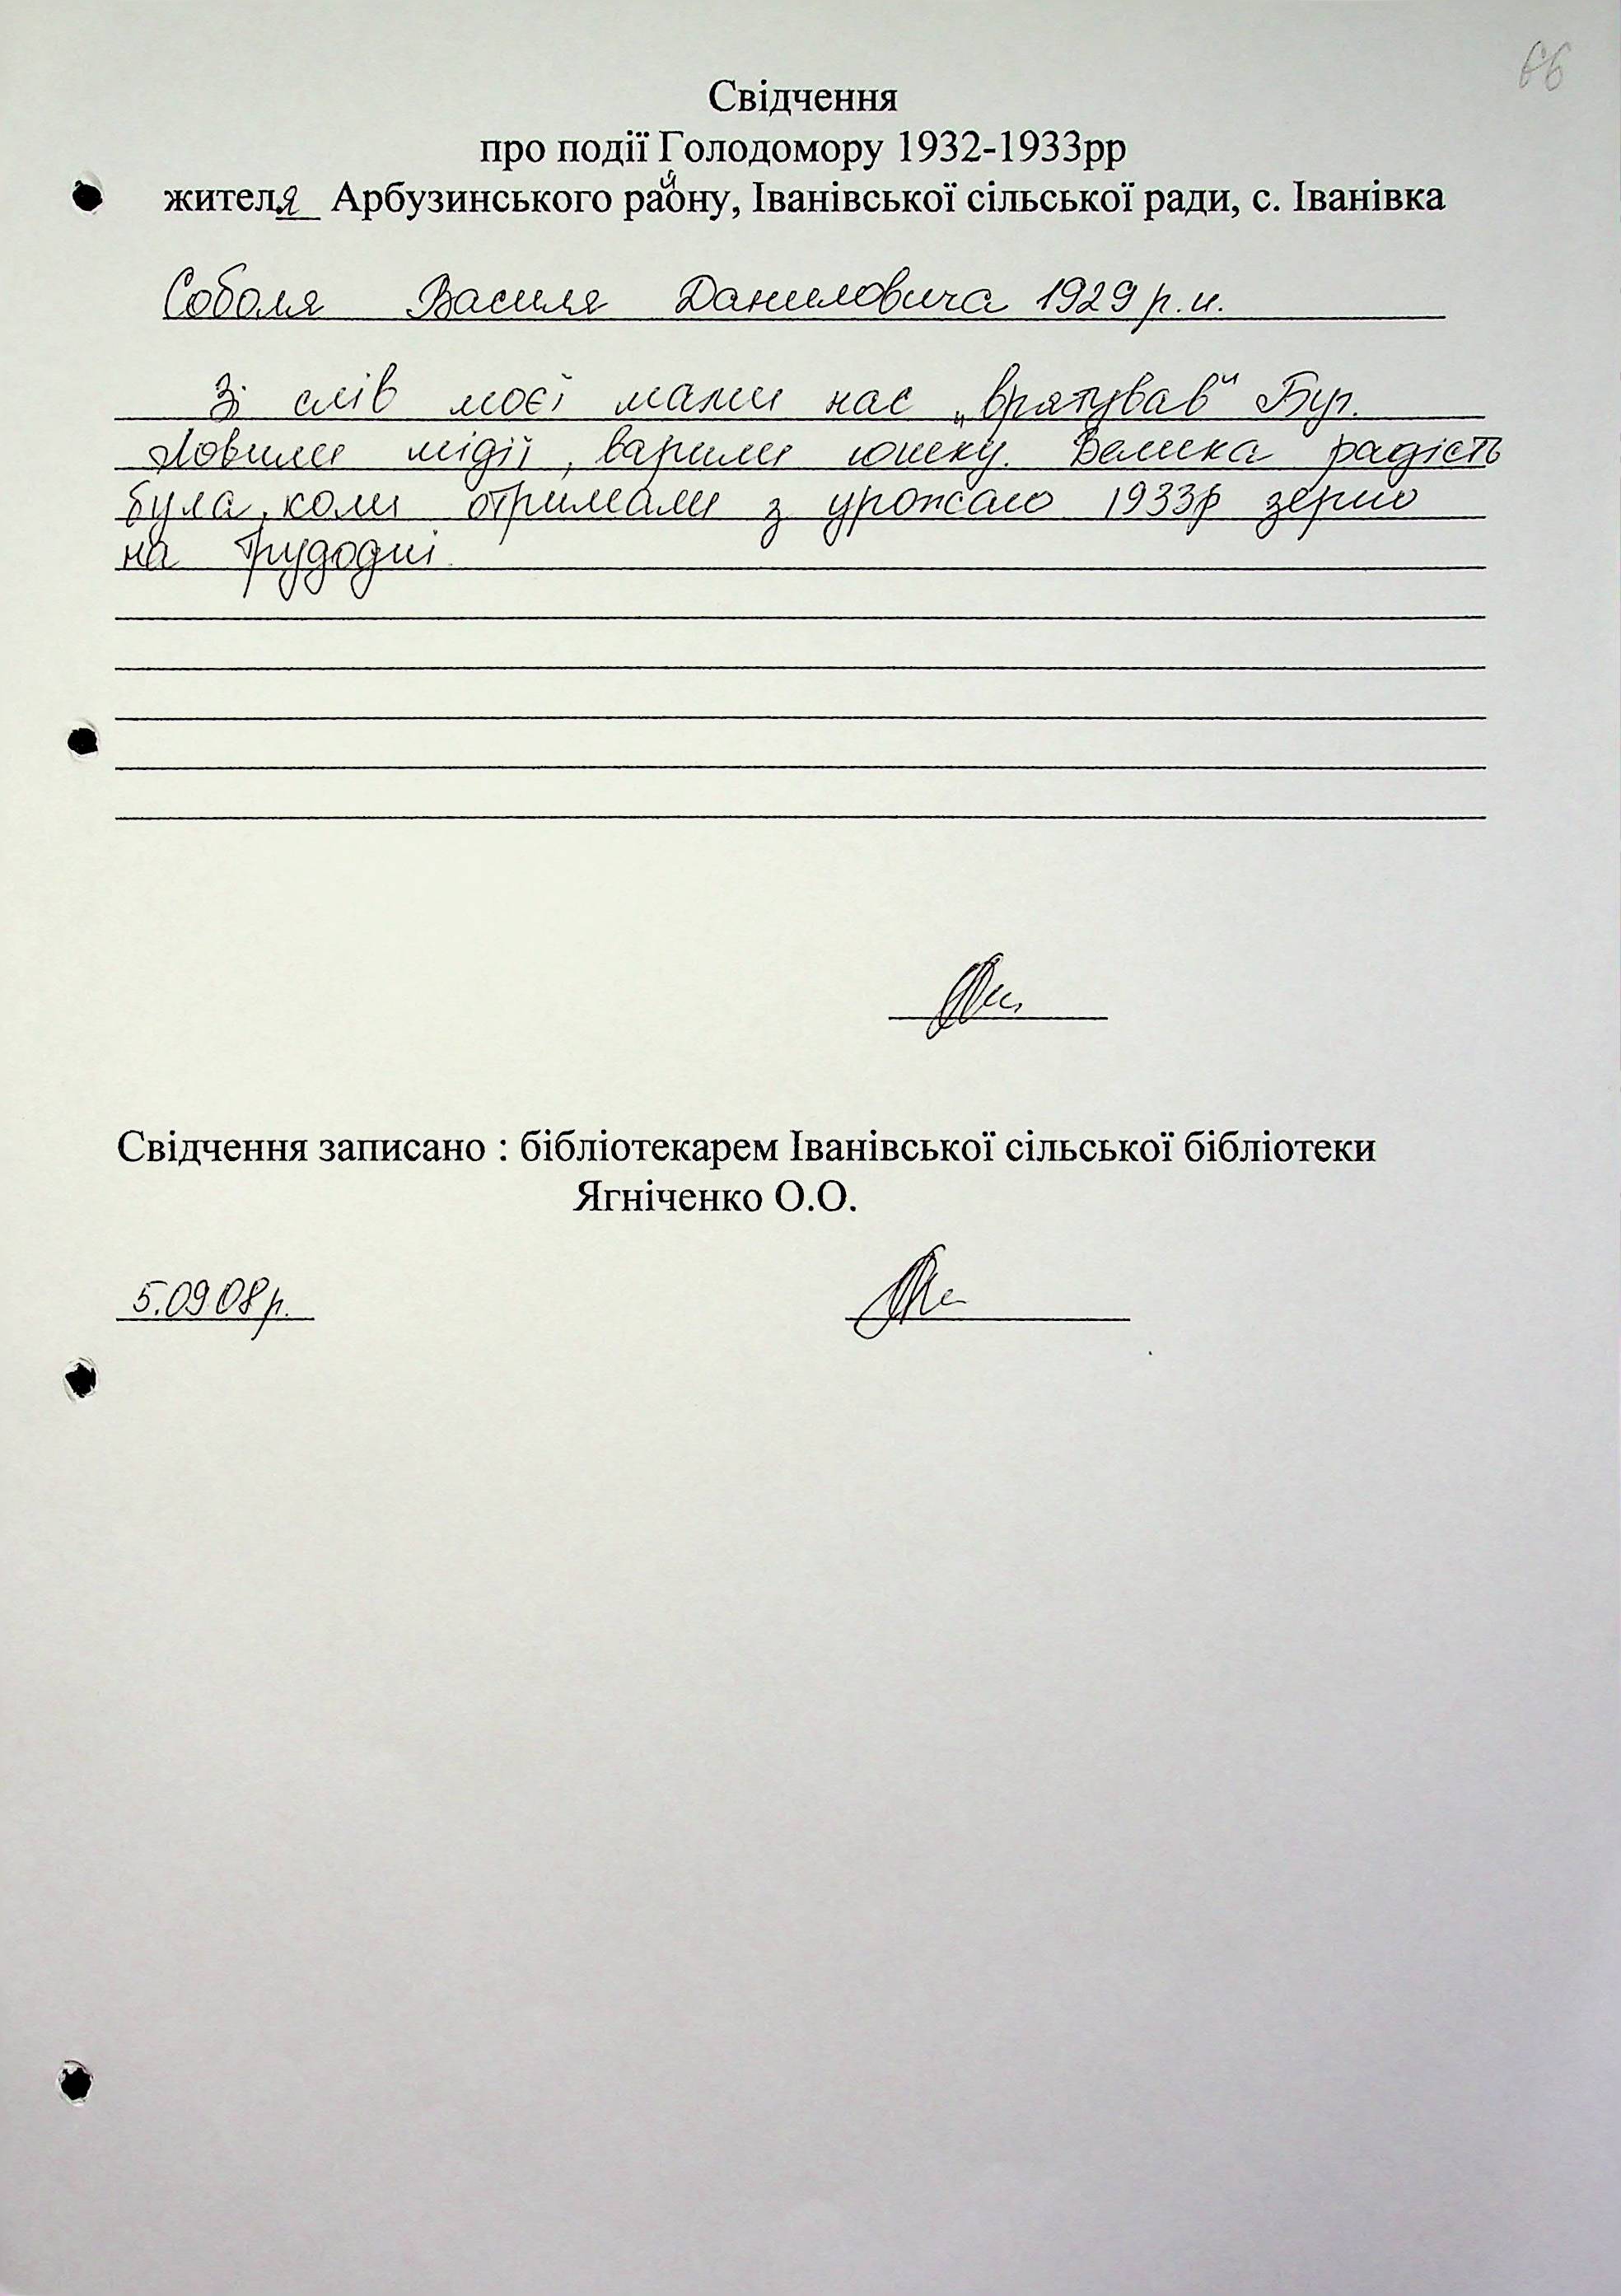 66
Свідчення
про події Голодомору 1932-1933рр
жителя Арбузинського району, Іванівської сільської ради, с. Іванівка
Соболя Василя Даниловича 1929 р.н.
Зі слів моєї мами нас „врятував" Буг.
Ловили мідії, варили юшку. Велика радість
була, коли отримали з урожаю 1933р зерно
на трудодні.
Свідчення записано : бібліотекарем Іванівської сільської бібліотеки
Ягніченко О.О.
5.09.08р.